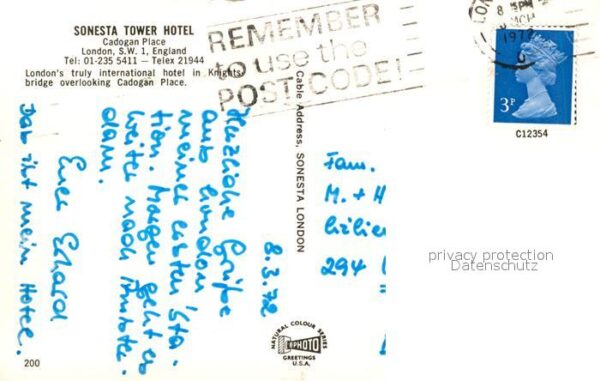 SONESTA TOWER HOTEL
Cadogan Place
London, S.W. 1, England
Tel: 01-235 5411 — Telex 21944
London's truly international hotel in Knights-
bridge overlooking Cadogan Place.
REMEMBER
to use the
POST CODE!
8 PM
8 MCH
1972
3P
C12354
Cable Address, SONESTA LONDON
8.3.72
Herzliche Grüße
aus London
meiner ersten Sta-
tion. Morgen geht es
weiter nach Amster-
dam.
Euer Ekhard
Das ist mein Hotel.
Fam.
M. + H
294
privacy protection
Datenschutz
NATURAL COLOUR SERIES
PHOTO
GREETINGS
U.S.A.
200